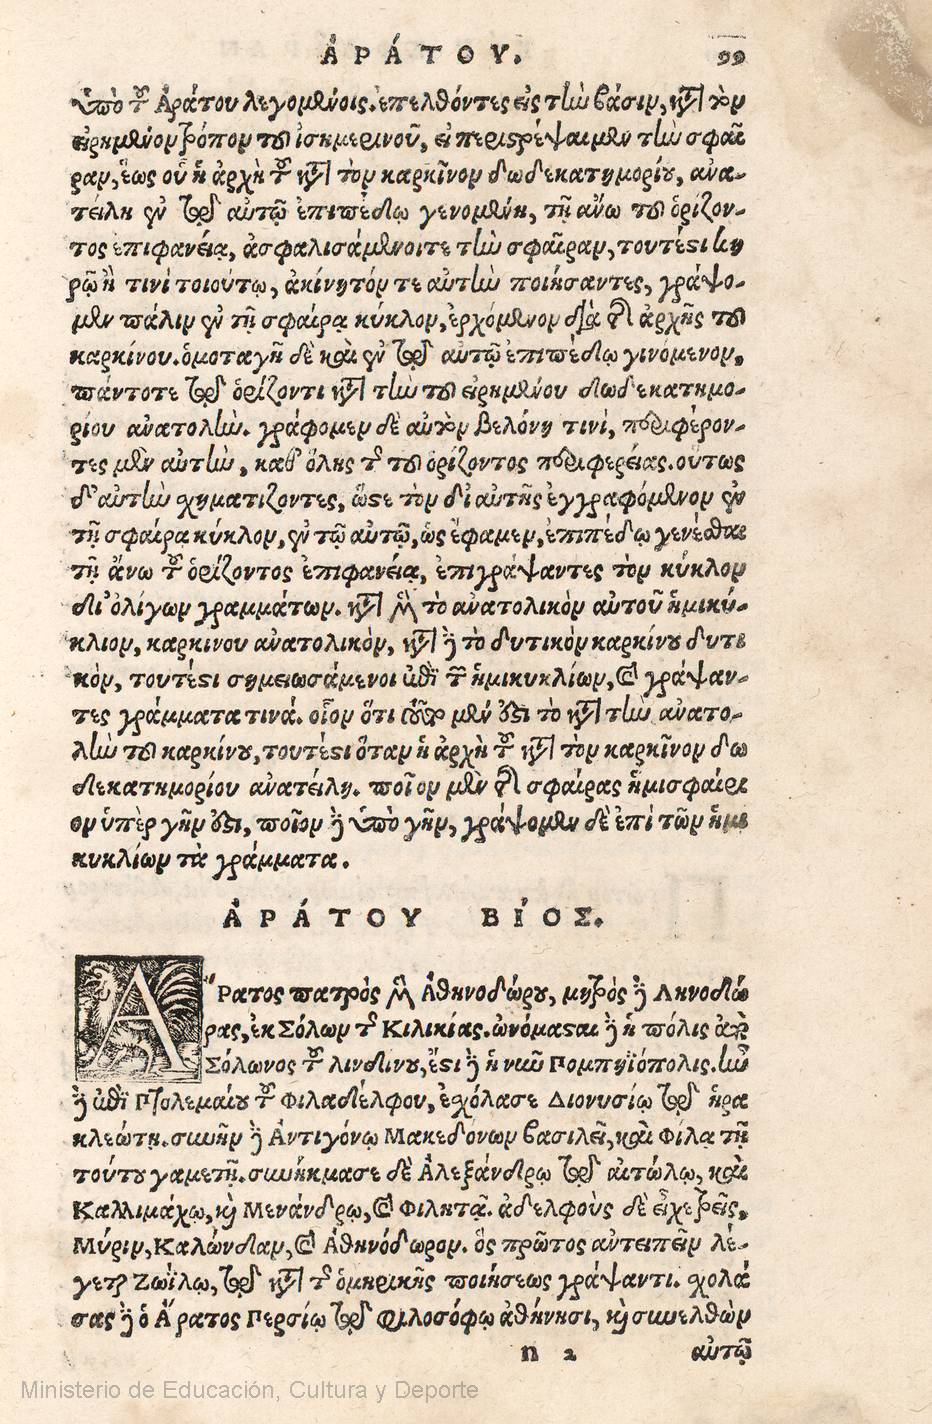 ἈΡΆΤΟΥ. 99
ὑπὸ τοῦ Ἀράτου λεγομένοις. ἐπελθόντες εἰς τὴν βάσιν, κατὰ τὸν
εἰρημένον τρόπον τοῦ ἰσημερινοῦ, εἰ περιστρέψαιμεν τὴν σφαῖ
ραν, ἕως οὗ ἡ ἀρχὴ τοῦ κατὰ τὸν καρκῖνον δωδεκατημορίου, ἀνα-
τείλῃ ἐν τῷ αὐτῷ ἐπιπέδῳ γενομένη, τῇ ἄνω τοῦ ὁρίζον-
τος ἐπιφανείᾳ, ἀσφαλισάμενοι τε τὴν σφαῖραν, τουτέστι κη
ρῷ ἢ τινὶ τοιούτῳ, ἀκίνητόν τε αὐτὴν ποιήσαντες, γράψο-
μεν πάλιν ἐν τῇ σφαίρᾳ κύκλον, ἐρχόμενον διὰ τῆς ἀρχῆς τοῦ
καρκίνου. ὁμοταγῆ δὲ καὶ ἐν τῷ αὐτῷ ἐπιπέδῳ γινόμενον,
πάντοτε τῷ ὁρίζοντι κατὰ τὴν τοῦ εἰρημένου δωδεκατημο-
ρίου ἀνατολὴν. γράφομεν δὲ αὐτὸν βελόνῃ τινί, περιφέρον-
τες μὲν αὐτὴν, καθ' ὅλης τῆς τοῦ ὁρίζοντος περιφερείας. οὕτως
δ' αὐτὴν σχηματίζοντες, ὥστε τὸν δι' αὐτῆς ἐγγραφόμενον ἐν
τῇ σφαίρα κύκλον, ἐν τῷ αὐτῷ, ὡς ἔφαμεν, ἐπιπέδῳ γενέσθαι
τῇ ἄνω τοῦ ὁρίζοντος ἐπιφανείᾳ, ἐπιγράψαντες τὸν κύκλον
δι' ὀλίγων γραμμάτων. κατὰ μὲν τὸ ἀνατολικὸν αὐτοῦ ἡμικύ-
κλιον, καρκινου ἀνατολικὸν, κατὰ δὲ τὸ δυτικὸν καρκίνου δυτι
κὸν, τουτέστι σημειωσάμενοι ἐπὶ τῶν ἡμικυκλίων, καὶ γράψαν-
τες γράμματα τινά. οἷον ὅτι τοῦτο μέν ἐστι τὸ κατὰ τὴν ἀνατο-
λὴν τοῦ καρκίνου, τουτέστι ὅταν ἡ ἀρχὴ τοῦ κατὰ τὸν καρκῖνον δω
δεκατημορίου ἀνατείλῃ. ποῖον μὲν τῆς σφαίρας ἡμισφαίρι
ον ὑπὲρ γῆν ἐστι, ποῖον δὲ ὑπὸ γῆν, γράψομεν δὲ ἐπὶ τῶν ἡμι
κυκλίων τὰ γράμματα.
ἈΡΆΤΟΥ ΒΊΟΣ.
Ἄρατος πατρὸς μὲν Ἀθηνοδώρου, μητρὸς δὲ Ληνοδώ
ρας, ἐκ Σόλων τῆς Κιλικίας. ὠνόμασται δὲ ἡ πόλις ἀπὸ
Σόλωνος τοῦ λινδίνου, ἔστι δὲ ἡ νῦν Πομπηϊόπολις. ἦν
δὲ ἐπὶ Πτολεμαίου τοῦ Φιλαδέλφου, ἐσχόλασε Διονυσίῳ τῷ ἡρα
κλεώτῃ. συνῆν δὲ Ἀντιγόνῳ Μακεδόνων βασιλεῖ, καὶ Φίλᾳ τῇ
τούτου γαμετῇ. συνήκμασε δὲ Ἀλεξάνδρῳ τῷ αἰτώλῳ, καὶ
Καλλιμάχῳ, καὶ Μενάνδρῳ, καὶ Φιλητᾷ. ἀδελφοὺς δὲ εἶχε τρεῖς,
Μύριν, Καλώνδαν, καὶ Ἀθηνόδωρον. ὃς πρῶτος ἀντειπεῖν λέ-
γεται Ζωΐλῳ, τῷ κατὰ τῆς ὁμηρικῆς ποιήσεως γράψαντι. σχολά
σας δὲ ὁ Ἄρατος Περσίῳ τῷ φιλοσόφῳ ἀθήνησι, καὶ συνελθὼν
n 2 αὐτῷ
Ministerio de Educación, Cultura y Deporte